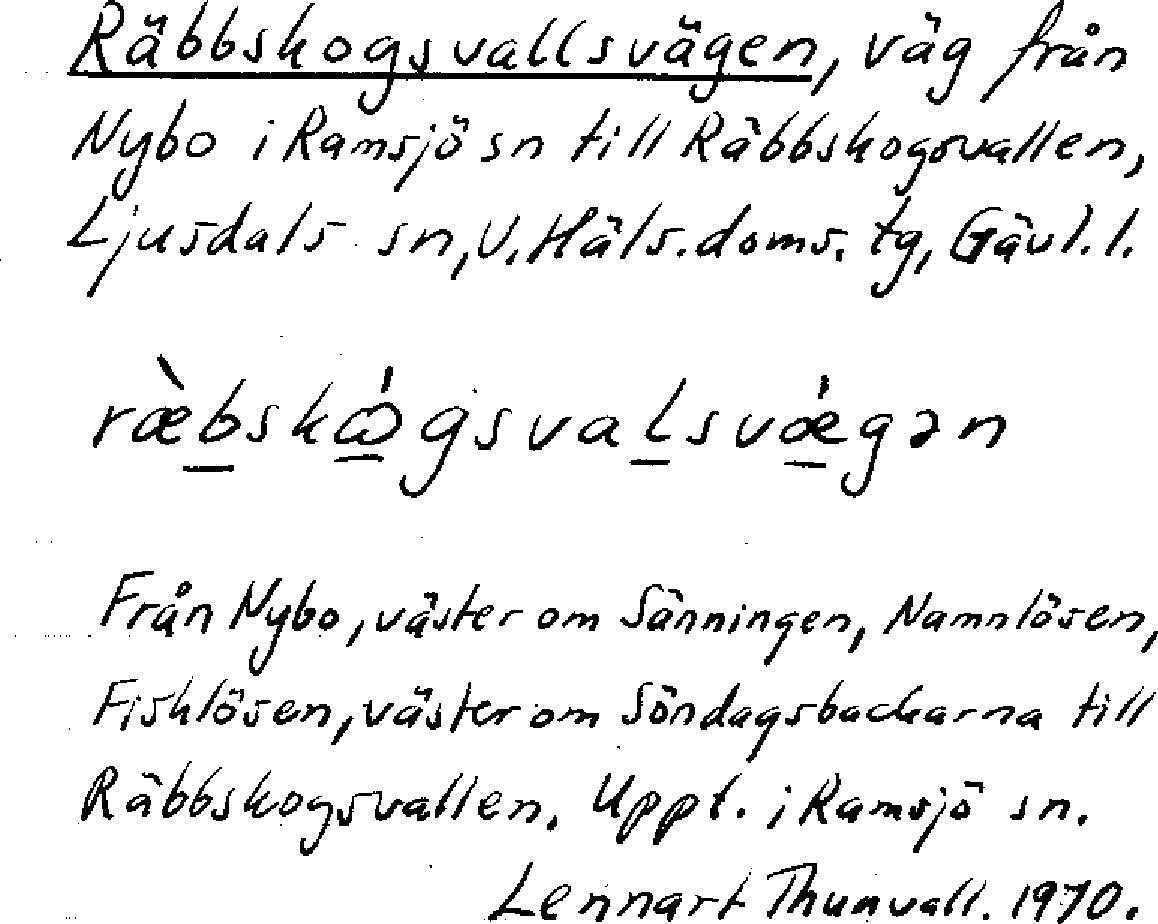 Räbbskogsvallsvägen, väg från
Nybo i Ramsjö sn till Räbbskogsvallen,
Ljusdals sn, V. Häls. doms. tg, Gävl. l.
ræ̀bskω̂́gsvalsvǽgən
Från Nybo, väster om Sänningen, Namnlösen,
Fisklösen, väster om Söndagsbackarna till
Räbbskogsvallen. Uppt. i Ramsjö sn.
Lennart Thunvall. 1970.